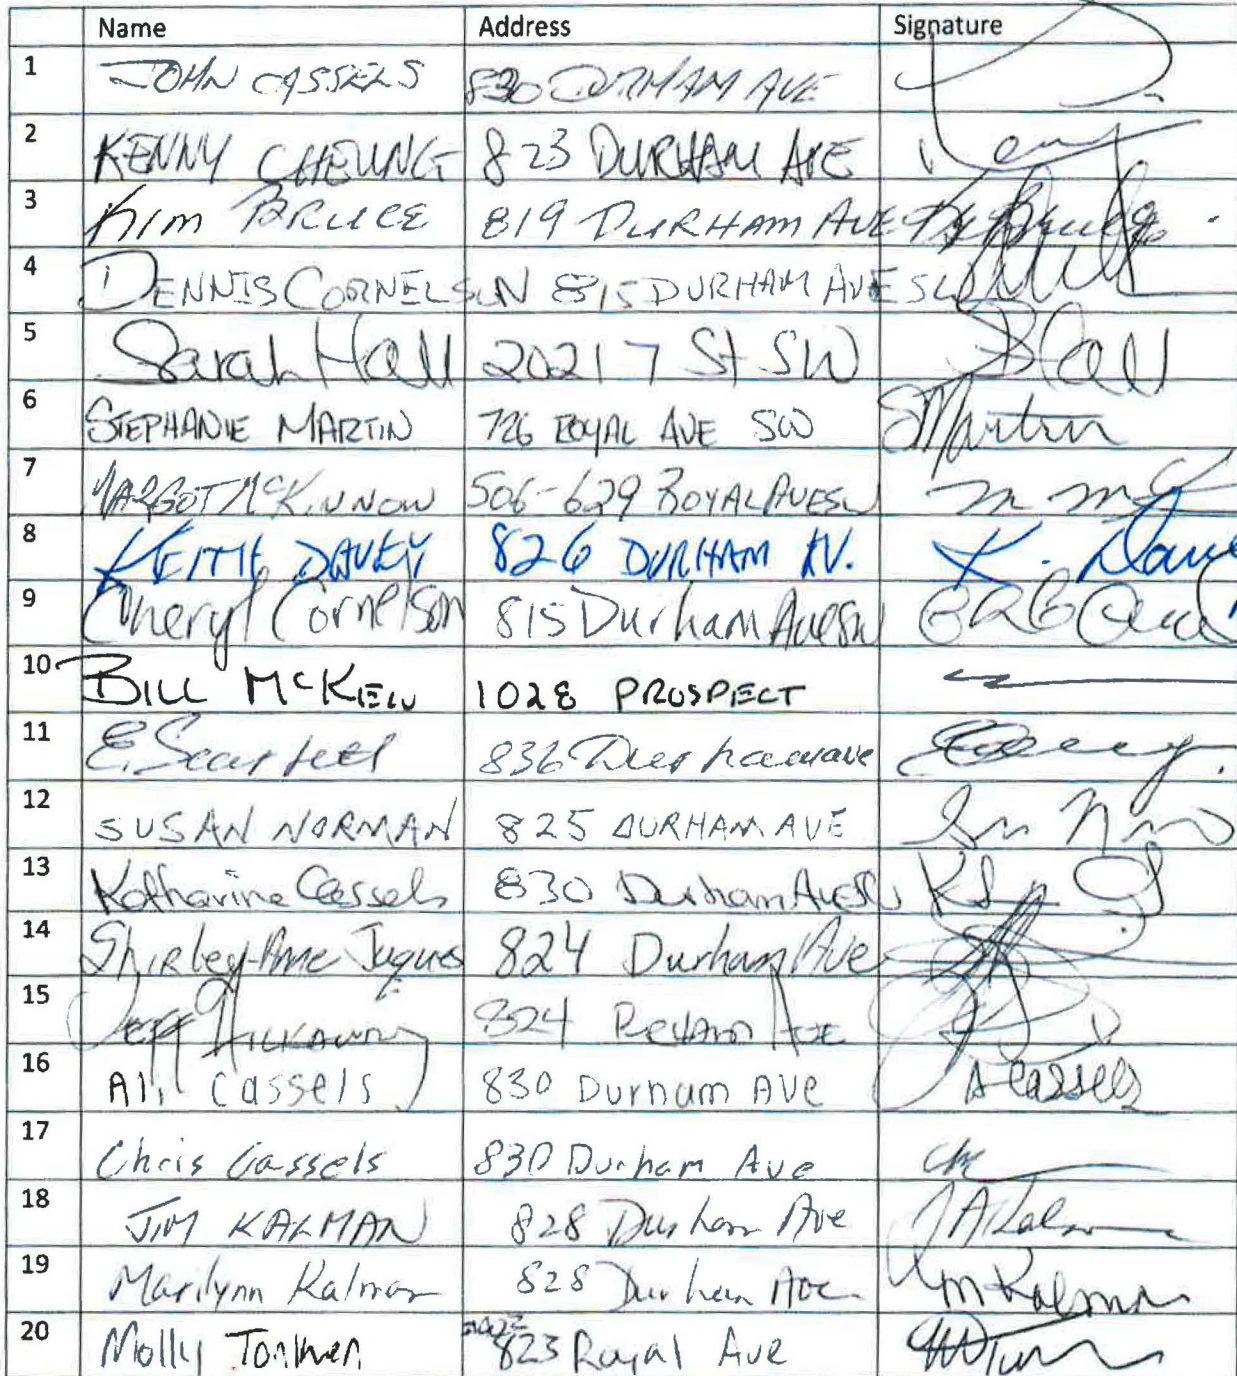 Name Address Signature
1 JOHN CASSELS 830 DURHAM AVE
2 KENNY CHEUNG 823 DURHAM AVE Kenny
3 Kim BRUCE 819 DURHAM AVE K Bruce
4 DENNIS CORNELSON 815 DURHAM AVE SW
5 Sarah Hall 2021 7 St SW SHall
6 STEPHANIE MARTIN 726 ROYAL AVE SW SMartin
7 MARGOT McKINNON 506-629 ROYAL AVE SW
8 KEITH DAVEY 826 DURHAM AV. K. Dave
9 Cheryl Cornelson 815 Durham Ave SW
10 BILL McKEW 1028 PROSPECT
11 E. 836 Durham ave
12 SUSAN NORMAN 825 DURHAM AVE
13 Katharine Cassels 830 Durham Ave SW
14 Shirley-Anne 824 Durham Ave
15 Jeff 824 Durham Ave
16 Ali Cassels 830 Durham Ave A Cassels
17 Chris Cassels 830 Durham Ave
18 JIM KALMAN 828 Durham Ave
19 Marilynn Kalman 828 Durham Ave M Kalman
20 Molly 823 Royal Ave